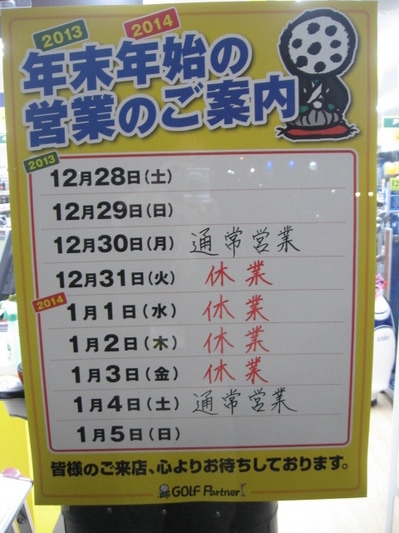 2013 2014
年末年始の
営業のご案内
2013
12月28日(土)
12月29日(日)
12月30日(月) 通常営業
12月31日(火) 休業
2014
1月1日(水) 休業
1月2日(木) 休業
1月3日(金) 休業
1月4日(土) 通常営業
1月5日(日)
皆様のご来店、心よりお待ちしております。
GOLF Partner